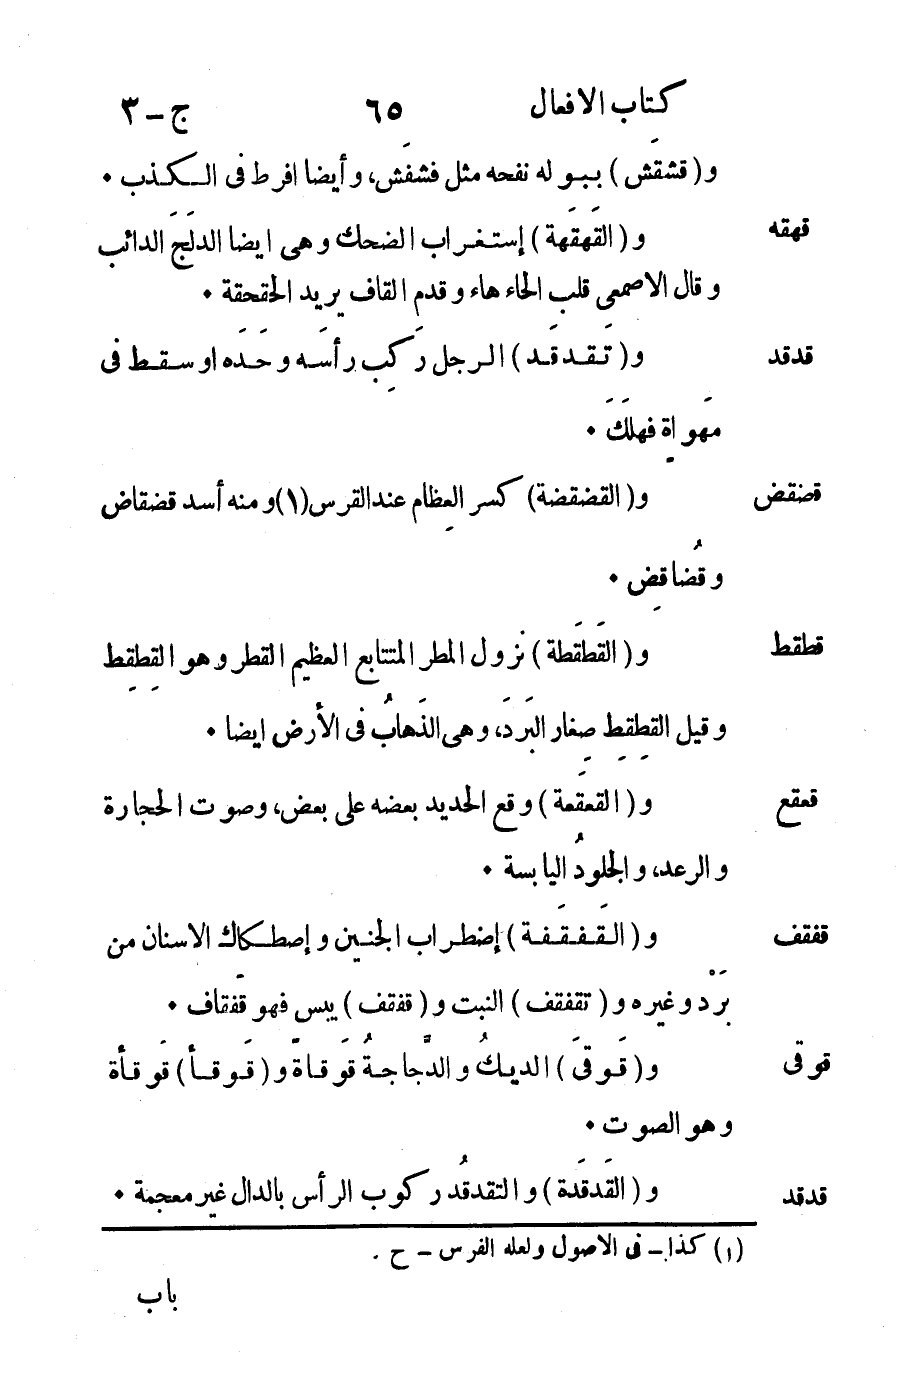 كتاب الافعال ٦٥ ج – ٣
و ( قشقش ) ببوله نفحه مثل فشفش، وأيضا افرط فى الكذب •
قهقه و ( القَهقَهة ) إستغراب الضحك وهى ايضا الدلَجَ الدائب
وقال الاصمعى قلب الحاء هاء وقدم القاف يريد الحقحقة •
قدقد و ( تَقدقَد ) الرجل رَكِب رأسَه وحَدَه او سقط فى
مَهواة فهلَكَ •
قضقض و ( القضقضة ) كسر العِظام عند القرس (١) ومنه أسد قَضقاض
وقُضاقِض •
قطقط و ( القَطقَطة ) نزول المطر المتتابع العظيم القطر وهو القِطقِط
وقيل القِطقِط صِغار البَرَدَ، وهى الذَهابُ فى الأرض ايضا •
قعقع و ( القعقَعة ) وقع الحديد بعضه على بعض، وصوت الحجارة
والرعد، والجلودُ اليابسة •
قفقف و ( القَفقَفة ) إضطراب الجنين وإصطكاك الاسنان من
بَرْد وغيره و ( تقفقف ) النبت و ( قفقف ) يبس فهو قَفقاف •
قوقى و ( قَوقَى ) الديكُ والدُّجاجةُ قَوقاةً و ( قَوقأ ) قَوقأة
وهو الصوت •
قدقد و ( القَدقَدة ) والتقدقُد ركوب الرأس بالدال غير معجمة •
(١) كذا – فى الاصول ولعله الفرس – ح .
باب